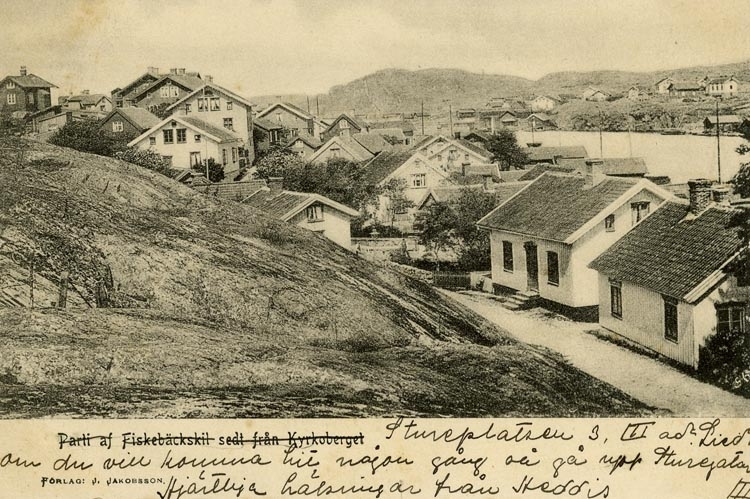 Parti af Fiskebäckskil sedt från Kyrkoberget Stureplatsen 3, III
om du vill komma hit någon gång så gå upp Sturegatan
FÖRLAG: J. JAKOBSSON. Hjärtliga hälsningar från Heddis